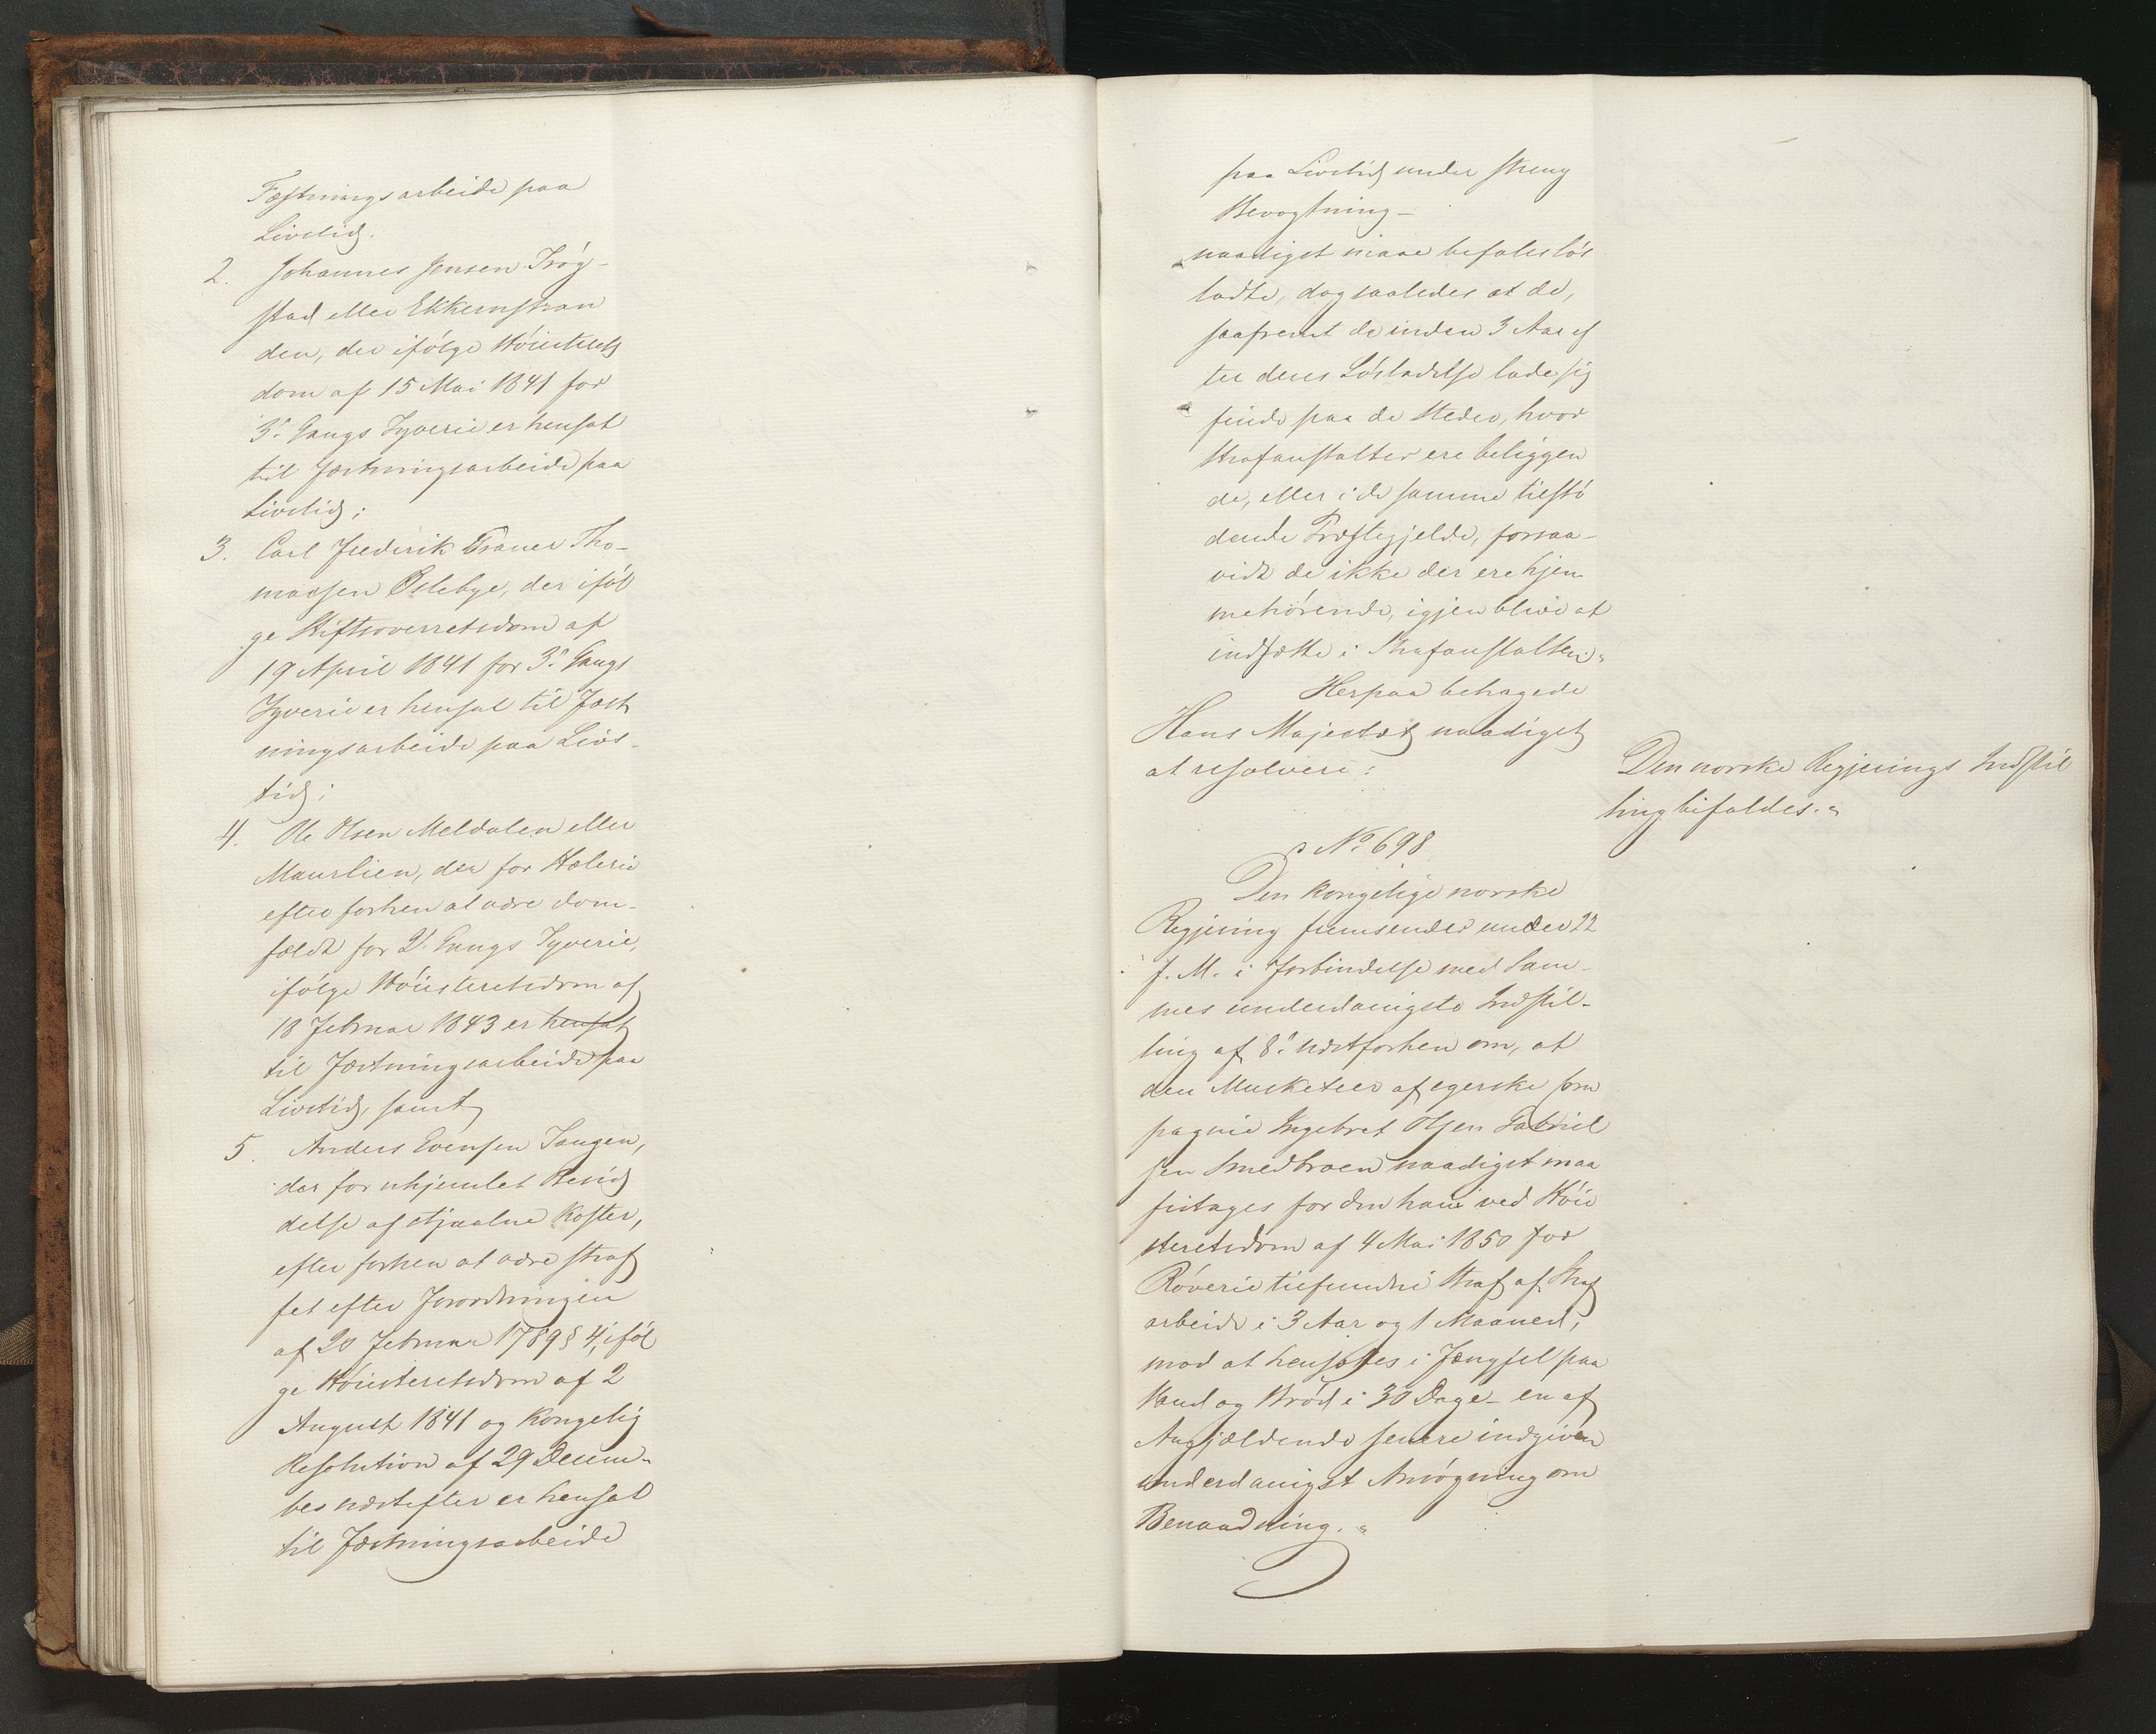 Fæstningsarbeide paa
Livstid.
2. Johannes Jensen Trøg-
stad eller Ekkernstran
den, der ifølge Høiesterets
dom af 15 Mai 1841 for
3die Gangs Tyverie er hensat
til Fæstningsarbeide paa
Livstid;
3. Carl Frederik Traner Tho-
massen Oslebye, der iføl
ge Stiftsoverretsdom af
19 April 1841 for 3die Gangs
Tyverie er hensat til Fæst
ningsarbeide paa Livs-
tid;
4. Ole Olsen Meldalen eller
Maurlien, der for Hæleri
efter forhen at være dom-
fældt for 2den Gangs Tyverie,
ifølge Høiesteretsdom af
18 Februar 1843 er hensat
til Fæstningsarbeide paa
Livstid, samt
5. Anders Evensen Tangen,
der for uhjemlet Besid
delse af stjaalne Koster,
efter forhen at være straf
fet efter Forordningen
af 20 Februar 1789 § 4, iføl
ge Høiesteretsdom af 2
August 1841 og Kongelig
Resolution af 29 Decem-
ber næstefter er hensat
til Fæstningsarbeide
paa Livstid under streng
Bevogtning –
naadigst maae befales løs
ladte, dog saaledes at de,
saafremt de inden 3 Aar ef
ter deres Løsladelse lade sig
finde paa de Steder, hvor
Strafanstalter ere beliggen
de, eller i de samme tilstø
dende Præstegjelde, forsaa-
vidt de ikke der ere hjem
mehørende, igjen blive at
indsætte i Strafanstalten."
Herpaa behagede
Hans Majestæt naadigst
at resolvere:
Den norske Regjerings Indstil
ling bifaldes."
No 698
Den kongelige norske
Regjering fremsender under 22
f. M. i Forbindelse med Sam-
mes underdanigste Indstil-
ling af 8de næstforhen om, at
den Musketeer af egerske Com
pagnie Ingebret Olsen Gabriel
sen Smedbroen naadigst maa
fritages for den ham ved Høie
steretsdom af 4 Mai 1850 for
Røverie tilfundne Straf af Straf
arbeide i 3 Aar og 1 Maaned,
mod at hensættes i Fængsel paa
Vand og Brød i 30 Dage – en af
Angjældende senere indgiven
underdanigst Ansøgning om
Benaadning."